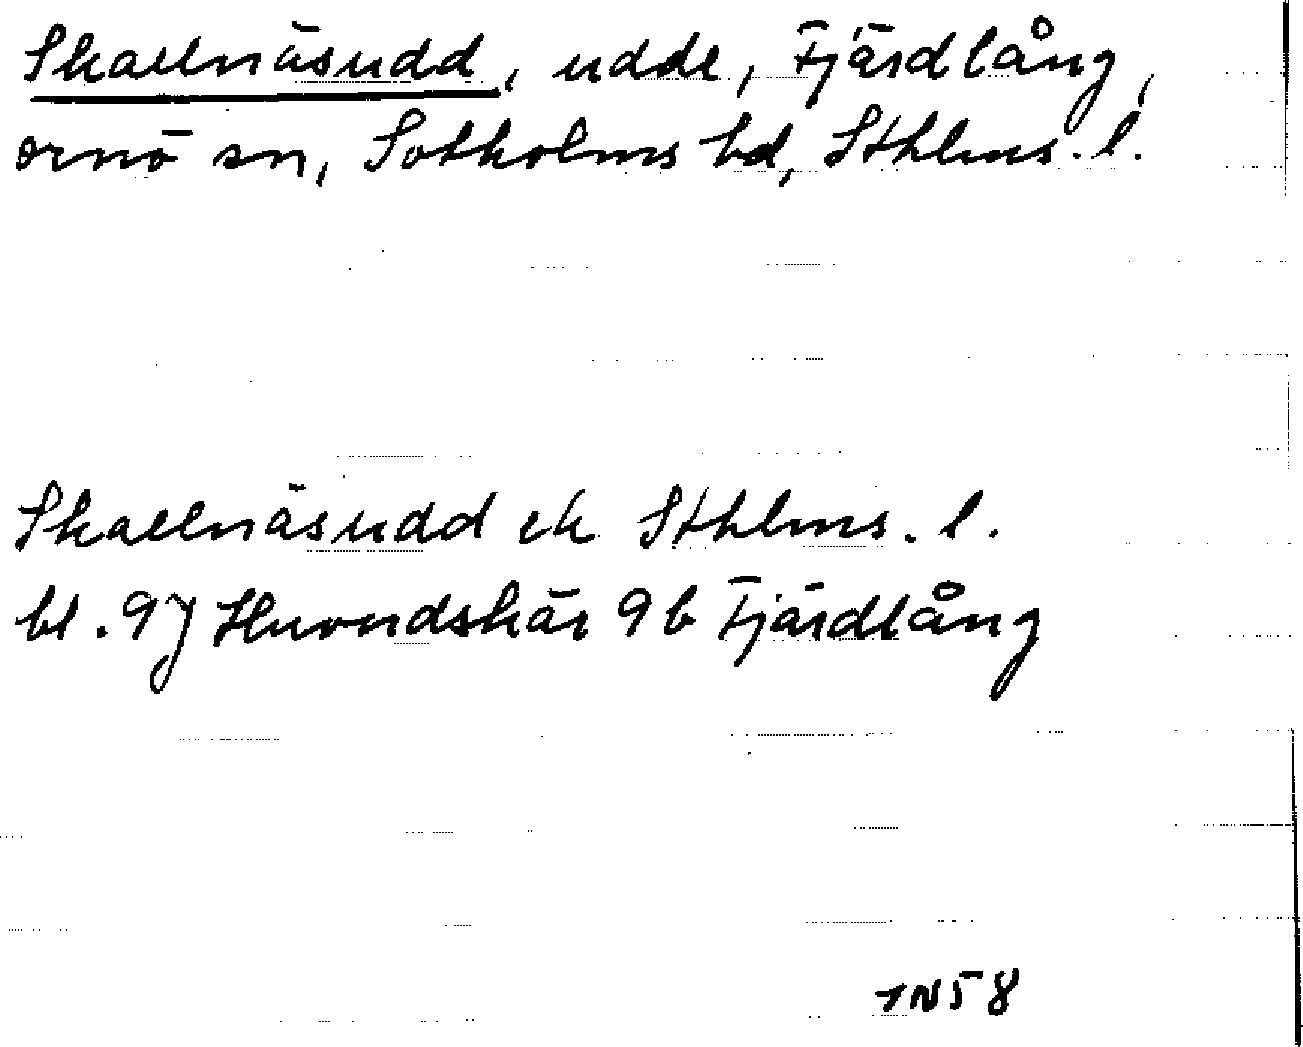 Skallnäsudd, udde, Fjärdlång,
Ornö sn, Sotholms hd, Sthlms. l.
Skallnäsudd ek Sthlms. l.
bl. 97 Huvudskär 9 b Fjärdlång
IN58